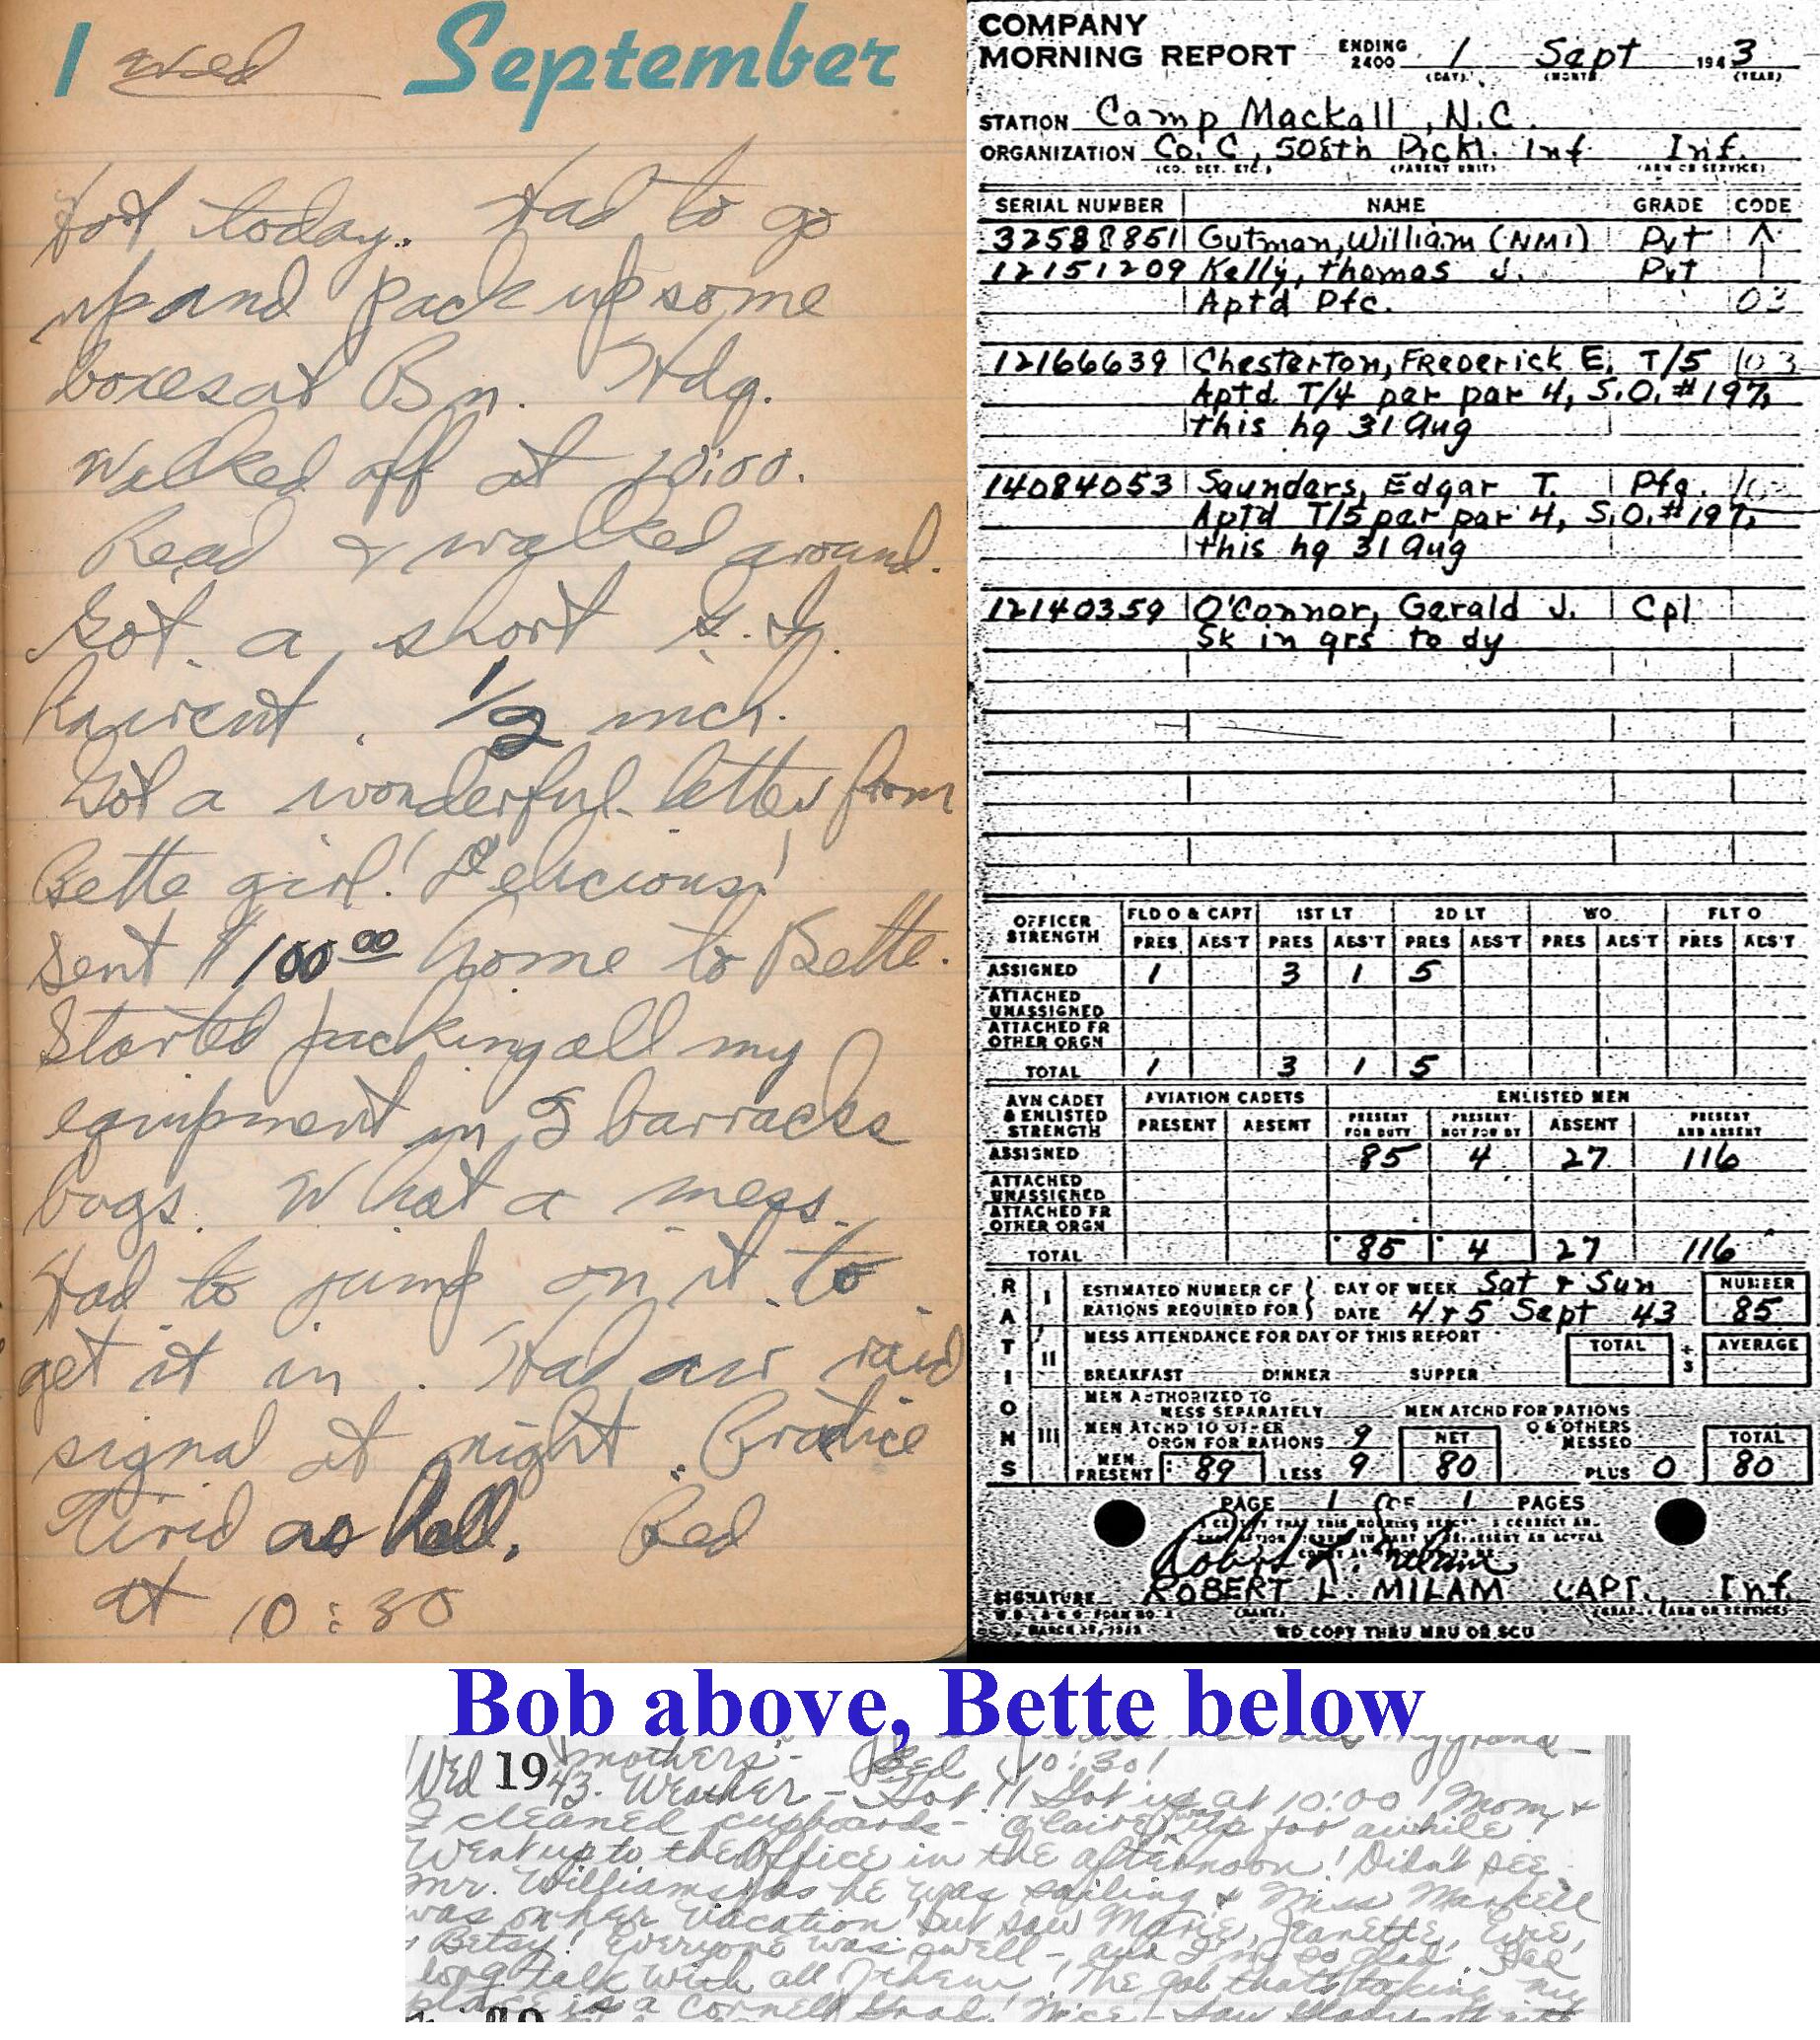 1 Wed September
Hot today. Had to go
up and pack up some
boxes at Bn. Hdq.
Walked off at 10:00.
Read & walked around.
Got a short G.I.
haircut. 1/2 inch.
Got a wonderful letter from
Bette girl! Delicious!
Sent $100.00 home to Bette.
Started packing all my
equipment in 2 barracks
bags. What a mess.
Had to jump on it to
get it in. Had air raid
signal at night. Practice
Tired as hell. Bed
at 10:30
COMPANY
MORNING REPORT ENDING 2400 1 Sept 1943
(DAY) (MONTH) (YEAR)
STATION Camp Mackall, N.C.
ORGANIZATION Co. C, 508th Prcht. Inf Inf.
(CO. DET. ETC.) (PARENT UNIT) (ARM OR SERVICE)
SERIAL NUMBER NAME GRADE CODE
32588851 Gutman, William (NMI) Pvt
12151209 Kelly, Thomas J. Pvt
Aptd Pfc. 03
12166639 Chesterton, Frederick E. T/5 03
Aptd T/4 per par 4, S.O. #197,
this hq 31 Aug
14084053 Saunders, Edgar T. Pfc.
Aptd T/5 per par 4, S.O. #197,
this hq 31 Aug
12140359 O'Connor, Gerald J. Cpl
Sk in qrs to dy
OFFICER STRENGTH FLD O & CAPT 1ST LT 2D LT WO FLT O
PRES ABS'T PRES ABS'T PRES ABS'T PRES ABS'T PRES ABS'T
ASSIGNED 1 3 1 5
ATTACHED UNASSIGNED
ATTACHED FR OTHER ORGN
TOTAL 1 3 1 5
AVN CADET & ENLISTED STRENGTH AVIATION CADETS ENLISTED MEN
PRESENT ABSENT PRESENT FOR DUTY PRESENT NOT FOR DY ABSENT PRESENT AND ABSENT
ASSIGNED 85 4 27 116
ATTACHED UNASSIGNED
ATTACHED FR OTHER ORGN
TOTAL 85 4 27 116
RATIONS
I ESTIMATED NUMBER OF RATIONS REQUIRED FOR DAY OF WEEK Sat & Sun NUMBER
DATE 4 & 5 Sept 43 85
II MESS ATTENDANCE FOR DAY OF THIS REPORT TOTAL ÷ 3 AVERAGE
BREAKFAST DINNER SUPPER
III MEN AUTHORIZED TO MESS SEPARATELY MEN ATCHD FOR RATIONS
MEN ATCHD TO OTHER ORGN FOR RATIONS 9 NET O & OTHERS MESSED TOTAL
MEN PRESENT 89 LESS 9 80 PLUS 0 80
PAGE 1 OF 1 PAGES
SIGNATURE ROBERT L. MILAM CAPT. Inf.
MARCH 29, 1943 WD COPY THRU MRU OR SCU
Bob above, Bette below
mothers - Bed 10:30!
Wed 1943. Weather - Hot!! Got up at 10:00! Mom &
I cleaned cupboards - Claire was up for awhile!
Went up to the office in the afternoon! Didn't see
Mr. Williams, as he was sailing & Miss Markell
was on her vacation, but saw Marie, Jeanette, Evie,
& Betsy! Everyone was swell -, and I'm so glad. Had
long talk with all of them! The gal that's taking my
place is a Cornell Grad! Nice - Saw